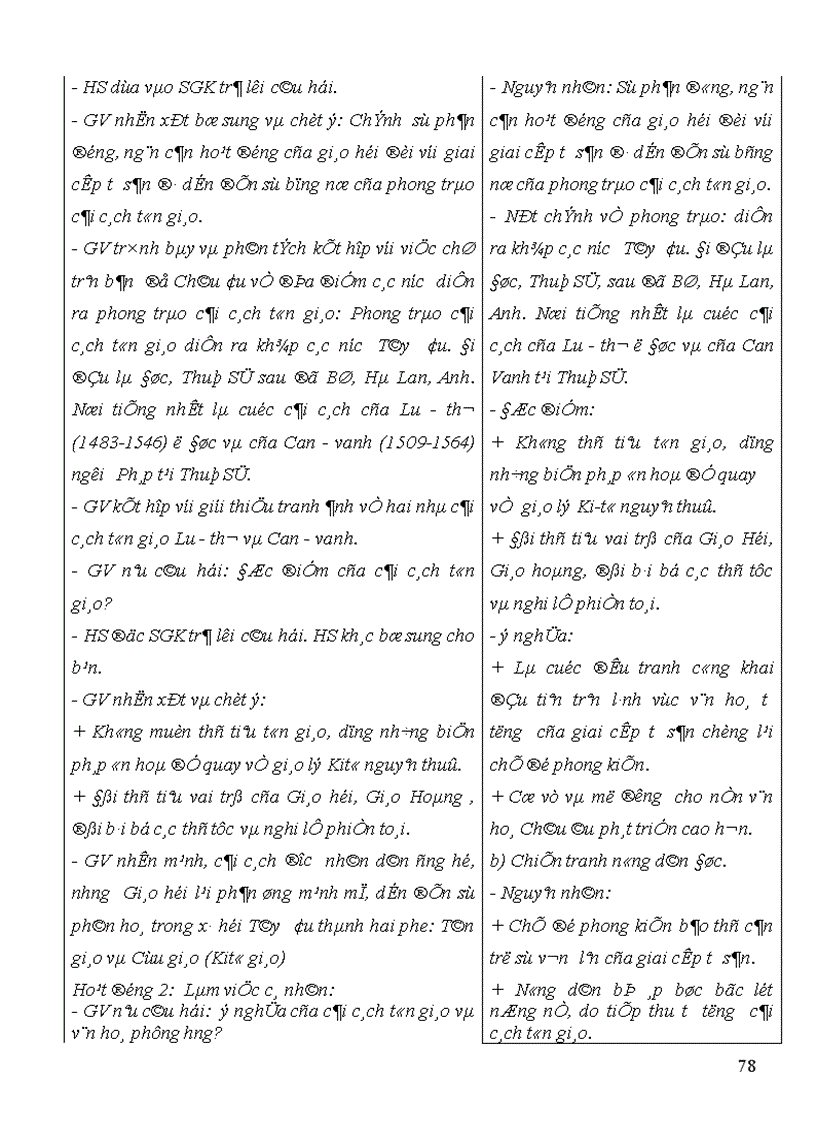 - HS dùa vµo SGK tr¶ lêi c©u hái.
- GV nhËn xÐt bæ sung vµ chèt ý: ChÝnh sù ph¶n
®éng, ng¨n c¶n ho¹t ®éng cña gi¸o héi ®èi víi giai
cÊp t s¶n ®· dÉn ®Õn sù bïng næ cña phong trµo
c¶i c¸ch t«n gi¸o.
- GV tr×nh bµy vµ ph©n tÝch kÕt hîp víi viÖc chØ
trªn b¶n ®å Ch©u ¢u vÒ ®Þa ®iÓm c¸c níc diÔn
ra phong trµo c¶i c¸ch t«n gi¸o: Phong trµo c¶i
c¸ch t«n gi¸o diÔn ra kh¾p c¸c níc T©y ¢u. §i
®Çu lµ §øc, Thuþ SÜ sau ®ã BØ, Hµ Lan, Anh.
Næi tiÕng nhÊt lµ cuéc c¶i c¸ch cña Lu - th¬
(1483-1546) ë §øc vµ cña Can - vanh (1509-1564)
ngêi Ph¸p t¹i Thuþ SÜ.
- GV kÕt hîp víi giíi thiÖu tranh ¶nh vÒ hai nhµ c¶i
c¸ch t«n gi¸o Lu - th¬ vµ Can - vanh.
- GV nªu c©u hái: §Æc ®iÓm cña c¶i c¸ch t«n
gi¸o?
- HS ®äc SGK tr¶ lêi c©u hái. HS kh¸c bæ sung cho
b¹n.
- GV nhËn xÐt vµ chèt ý:
+ Kh«ng muèn thñ tiªu t«n gi¸o, dïng nh÷ng biÖn
ph¸p «n hoµ ®Ó quay vÒ gi¸o lý Kit« nguyªn thuû.
+ §ßi thñ tiªu vai trß cña Gi¸o héi, Gi¸o Hoµng ,
®ßi b·i bá c¸c thñ tôc vµ nghi lÔ phiÒn to¸i.
- GV nhÊn m¹nh, c¶i c¸ch ®îc nh©n d©n ñng hé,
nhng Gi¸o héi l¹i ph¶n øng m¹nh mÏ, dÉn ®Õn sù
ph©n ho¸ trong x· héi T©y ¢u thµnh hai phe: T©n
gi¸o vµ Cùu gi¸o (Kit« gi¸o)
Ho¹t ®éng 2: Lµm viÖc c¸ nh©n:
- GV nªu c©u hái: ý nghÜa cña c¶i c¸ch t«n gi¸o vµ
v¨n ho¸ phông hng?
- Nguyªn nh©n: Sù ph¶n ®«ng, ng¨n
c¶n ho¹t ®éng cña gi¸o héi ®èi víi
giai cÊp t s¶n ®· dÉn ®Õn sù bñng
næ cña phong trµo c¶i c¸ch t«n gi¸o.
- NÐt chÝnh vÒ phong trµo: diÔn
ra kh¾p c¸c níc T©y ¢u. §i ®Çu lµ
§øc, Thuþ SÜ, sau ®ã BØ, Hµ Lan,
Anh. Næi tiÕng nhÊt lµ cuéc c¶i
c¸ch cña Lu - th¬ ë §øc vµ cña Can
Vanh t¹i Thuþ SÜ.
- §Æc ®iÓm:
+ Kh«ng thñ tiªu t«n gi¸o, dïng
nh÷ng biÖn ph¸p «n hoµ ®Ó quay
vÒ gi¸o lý Ki-t« nguyªn thuû.
+ §ßi thñ tiªu vai trß cña Gi¸o Héi,
Gi¸o hoµng, ®ßi b·i bá c¸c thñ tôc
vµ nghi lÔ phiÒn to¸i.
- ý nghÜa:
+ Lµ cuéc ®Êu tranh c«ng khai
®Çu tiªn trªn l·nh vùc v¨n ho¸ t
tëng cña giai cÊp t s¶n chèng l¹i
chÕ ®é phong kiÕn.
+ Cæ vò vµ më ®êng cho nÒn v¨n
ho¸ Ch©u ©u ph¸t triÓn cao h¬n.
b) ChiÕn tranh n«ng d©n §øc.
- Nguyªn nh©n:
+ ChÕ ®é phong kiÕn b¶o thñ c¶n
trë sù v¬n lªn cña giai cÊp t s¶n.
+ N«ng d©n bÞ ¸p bøc bãc lét
nÆng nÒ, do tiÕp thu t tëng c¶i
c¸ch t«n gi¸o.
78